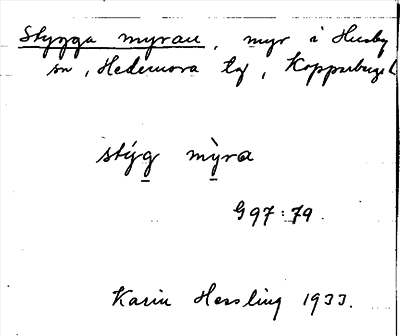 Stygga myran, myr i Husby
sn, Hedemora tg, Kopparbergs l
stýg mỳra
G 97:79.
Karin Hessling 1933.